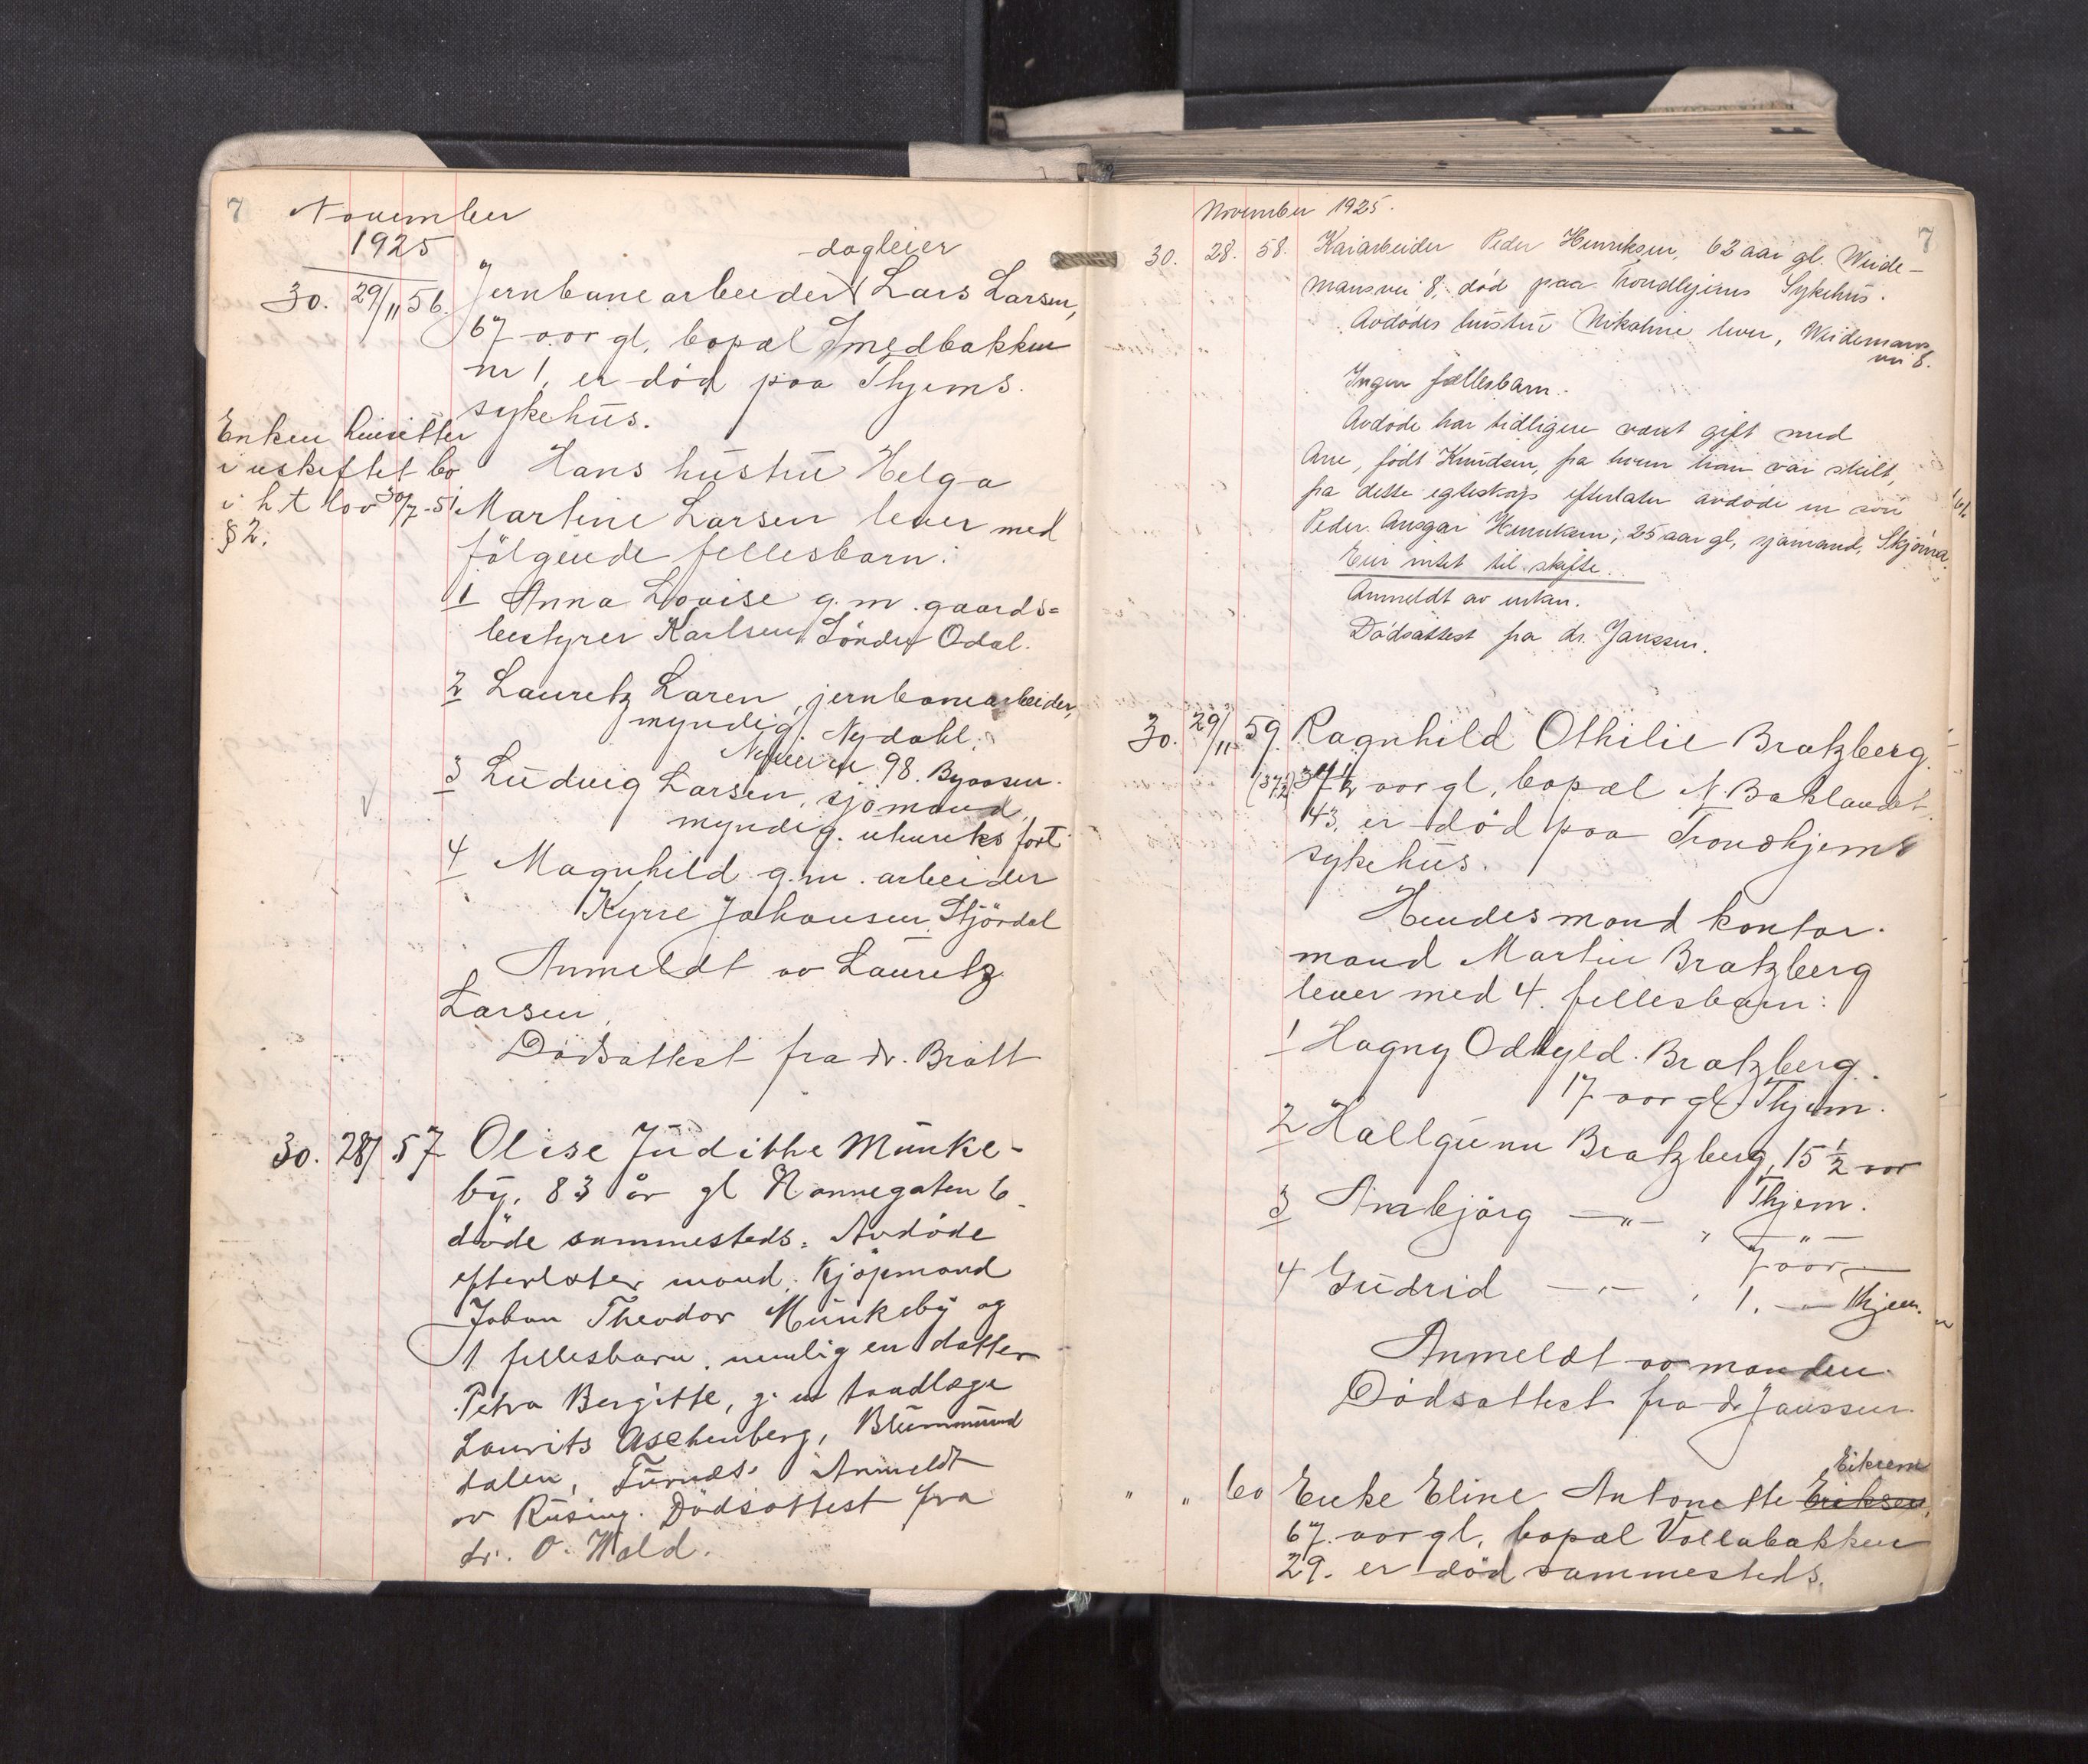 7 November
1925
dagleier
30. 29/11 56. Jernbanearbeider Lars Larsen,
67 aar gl. bopæl Smedbakken
nr 1, er död paa Thjems.
sykehus.
Enken hensitter
i uskiftet bo
i h t lov 30/7-51
§ 2.
Hans hustru Helga
Martine Larsen lever med
fölgende fellesbarn:
1 Anna Lovise g. m. gaards=
bestyrer Karlsen, Söndre Odal.
2 Lauretz Laren, jernbanearbeider,
myndig. Nydahl,
98. Byaasen.
3 Ludvig Larsen, sjömand,
myndig. utenriks fart
4 Magnhild g. m. arbeider
Kyrre Johansen, Stjördal
Anmeldt av Lauretz
Larsen.
Dödsattest fra dr. Bratt
30. 28/ 57 Olise Judithe Munke-
by, 83 år gl Nonnegaten 6
döde sammesteds. Avdöde
efterlater mand, Kjöpmand
Johan Theodor Munkeby og
1 fellesbarn, nemlig en datter
Petra Bergitte, g. m tandlæge
Laurits Aschenberg, Brummund
dalen, Furnes. Anmeldt
av Rusing. Dödsattest fra
dr. O. Wald.
November 1925.
7
30. 28. 58. Kaiarbeider Peder Henriksen, 62 aar gl. Weide-
mansvei 8, död paa Trondhjems Sykehus.
Avdödes hustru Nikoline lever, Weidemans
vei 8.
Ingen fællesbarn.
Avdöde har tidligere været gift med
Ane, födt Knudsen, fra hvem han var skilt,
fra dette egteskap efterlater avdöde en sön
Peder Ansgar Henriksen, 25 aar gl, sjömand,
Eier intet til skifte.
Anmeldt av enken.
Dödsattest fra dr. Janssen.
30. 29/11 59. Ragnhild Othilie Bratzberg
(37½) 37½ aar gl, bopæl N. Baklandet
43, er död paa Trondhjems
sykehus.
Hendes mand kontor-
mand Martin Bratzberg
lever med 4 fellesbarn:
1 Hagny Odhyld Bratzberg.
17 aar gl. Thjem.
2 Hallgunn Bratzberg, 15½ aar
Thjem.
3 Arnbjörg —"— , —"—
7 aar —
4 Gudrid —"— , 1. —"— Thjem.
Anmeldt av manden
Dödsattest fra dr Janssen.
Eikrem
" " 60 Enke Eline Antonette Eriksen,
67 aar gl, bopæl Vollabakken
29. er död sammesteds.